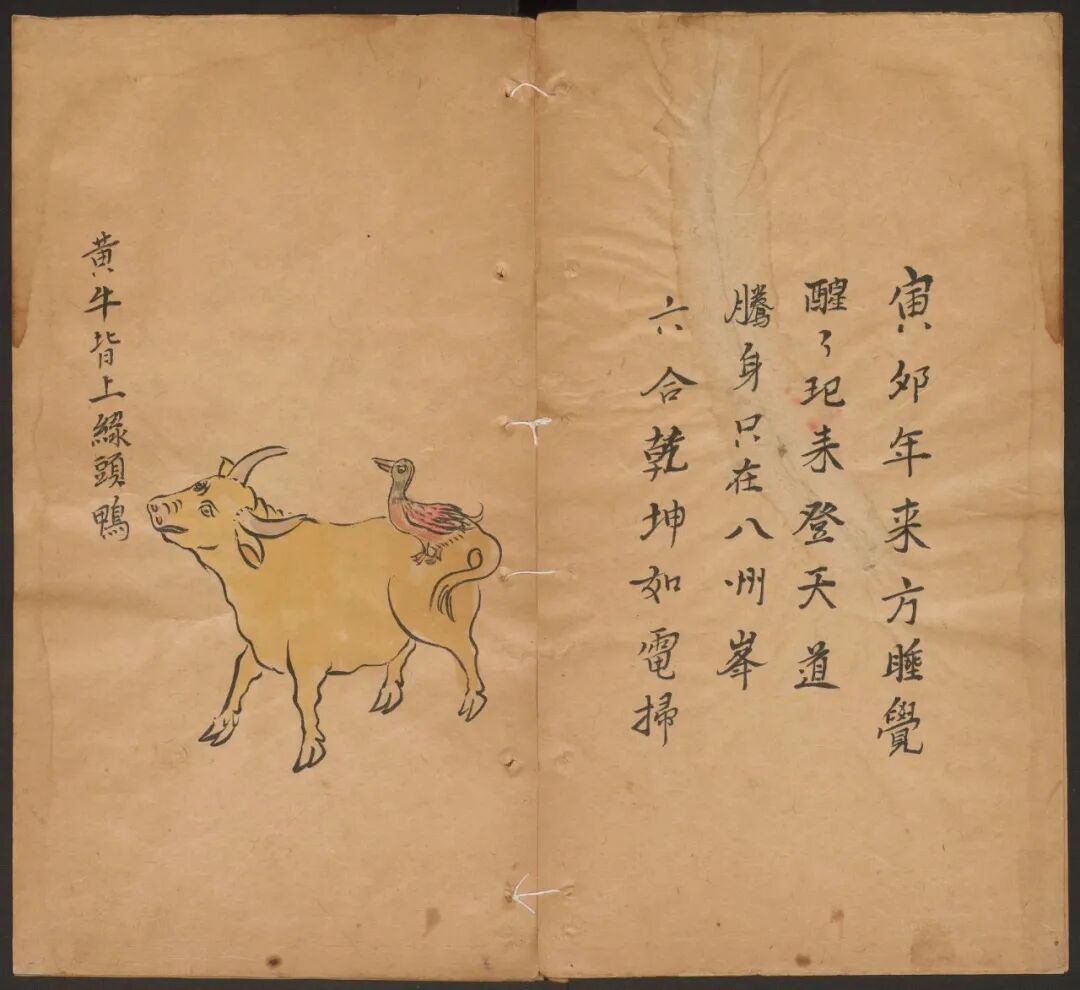 寅夘年来方睡覺
醒了起来登天道
騰身只在八州峯
六合乾坤如電掃
黃牛背上綠頭鴨